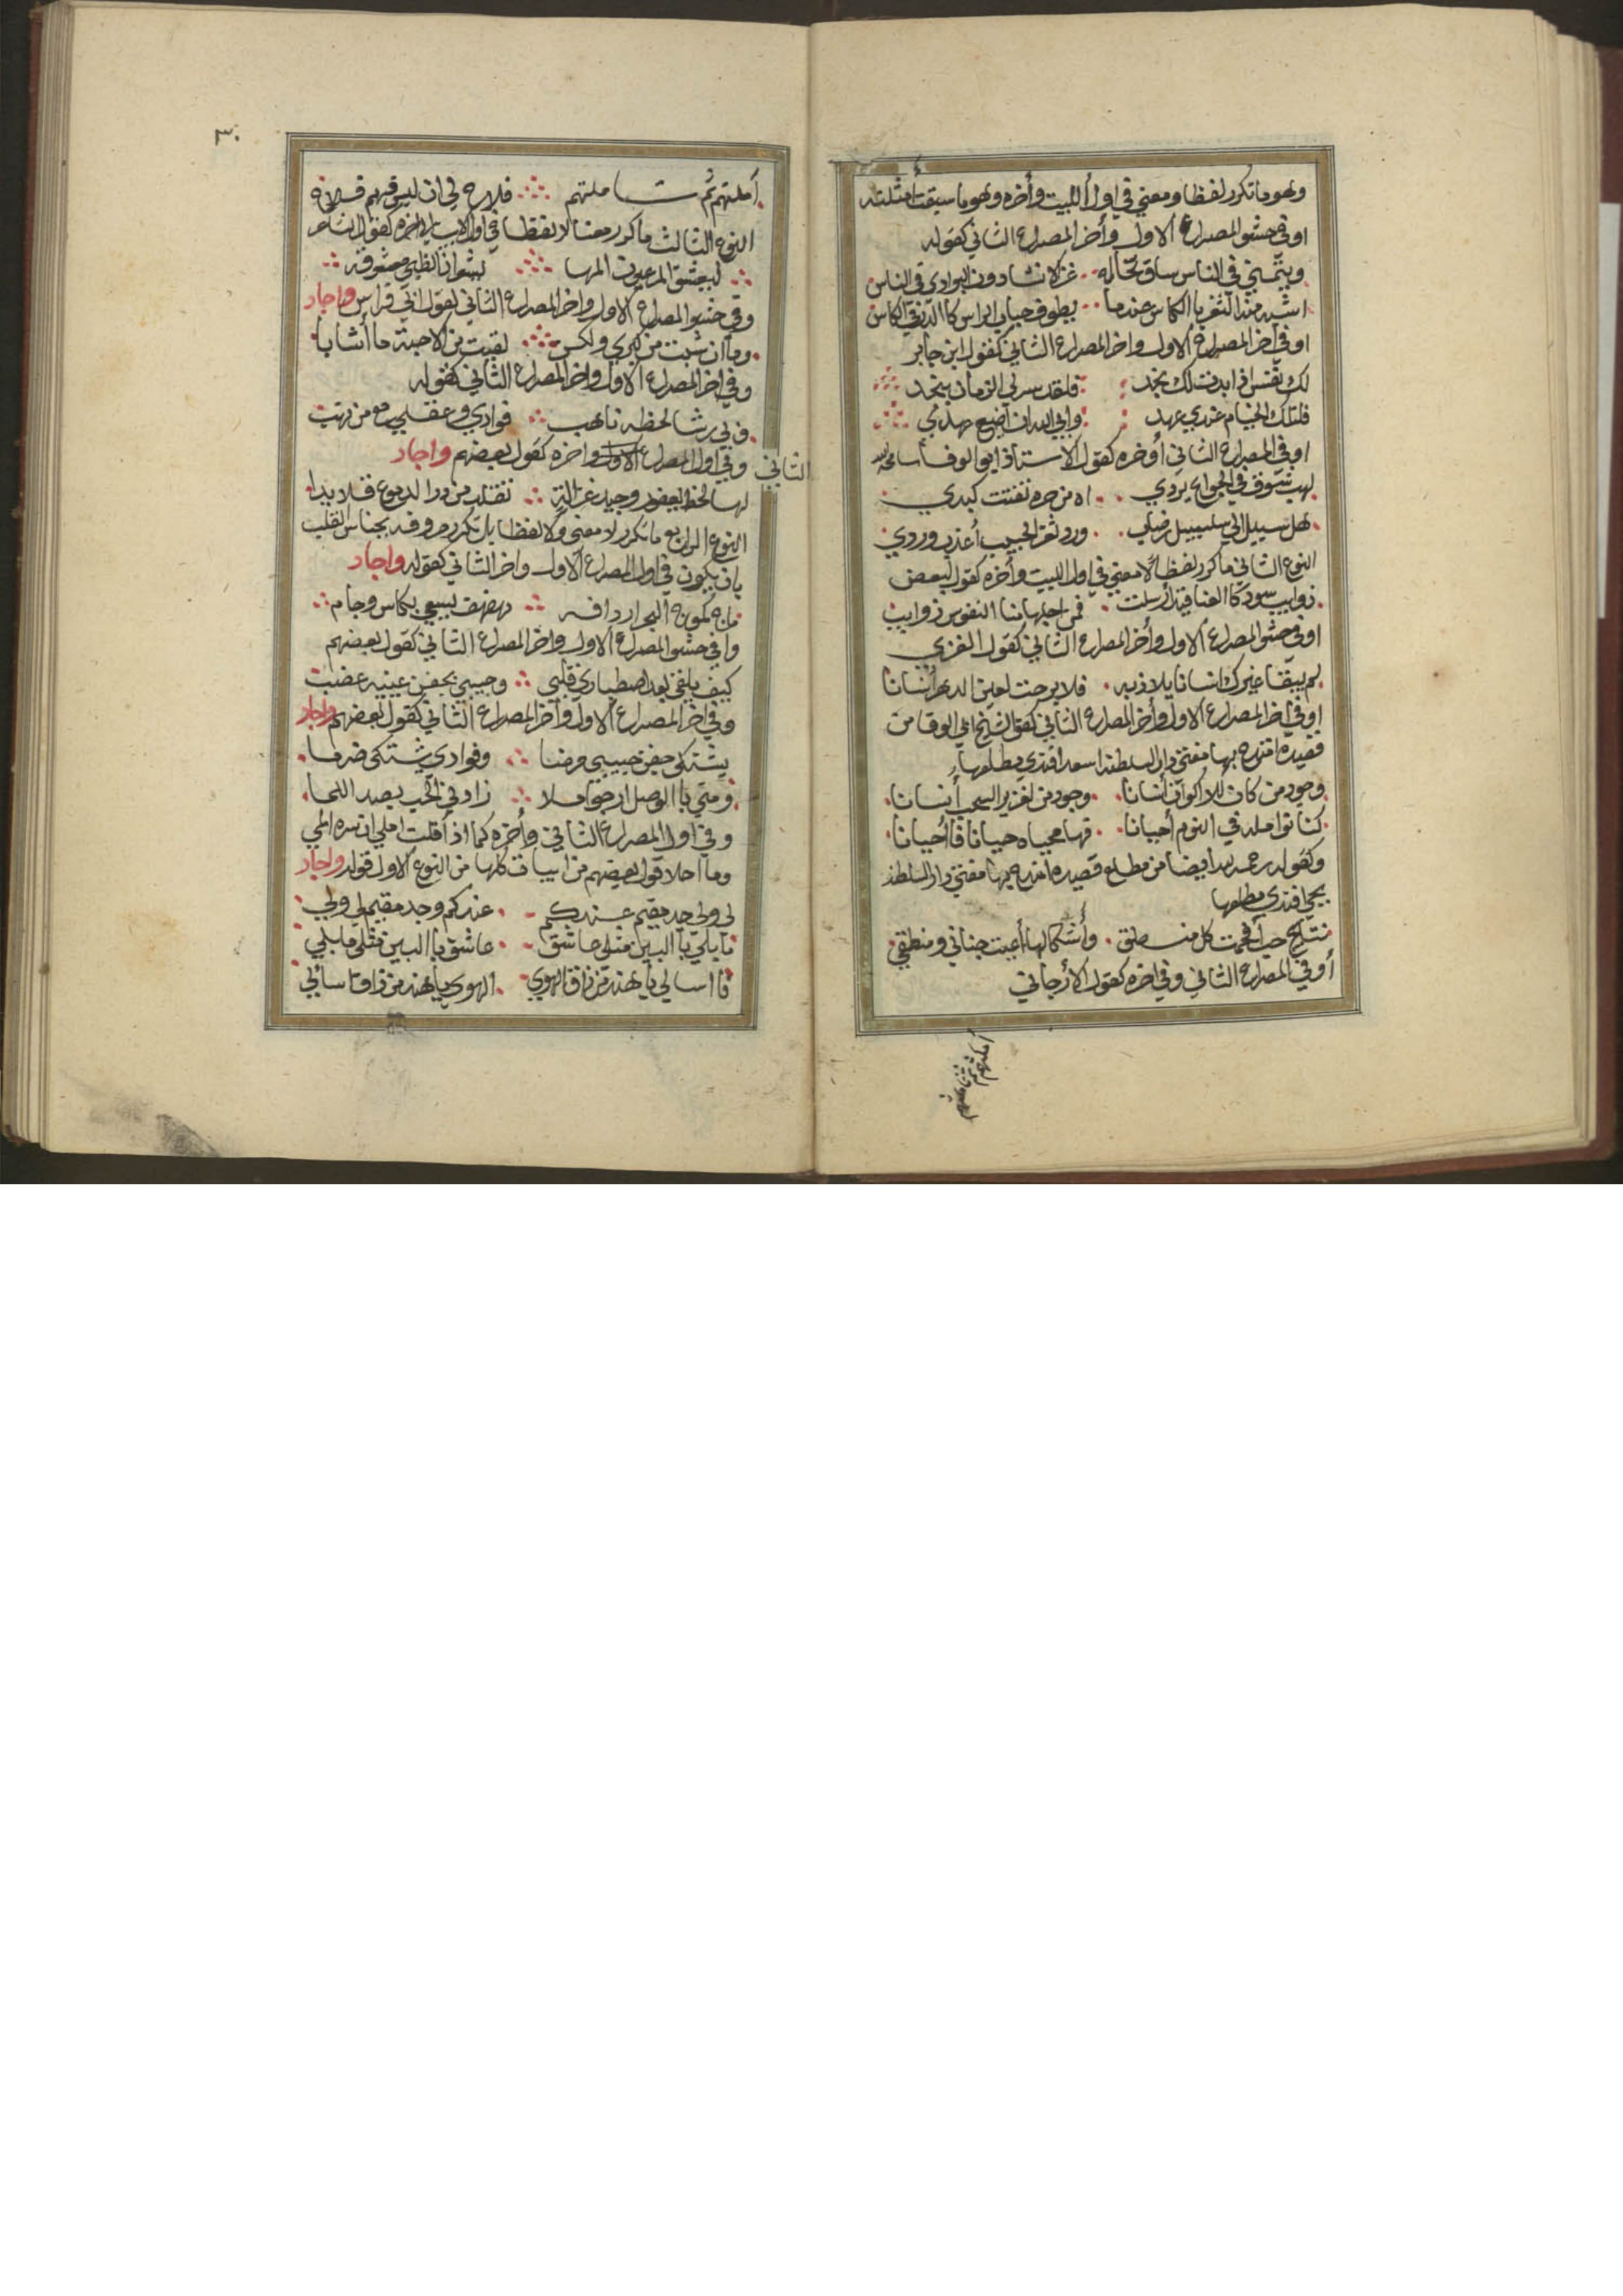 وهو ما تكرر لفظا ومعني في اول البيت وأخره وهو ما سبقت أمثلته
او في حشو المصراع الاول وأخر المصراع الثاني كقوله
في الناس ساق تخاله غزالا في الناس
يطوف الكاس
او في أخر المصراع الاول واخر المصراع الثاني كقول ابن جابر
فلقد سر لي الزمان بنجد
فلتلك الخيام عندي عهد وابي الله ان اضيع عهدي
او في المصراع الثاني أو أخره كقول الاستاذ ابو الوفا سامحه الله
لهب شوق في الجوانح اه من حره تفتت كبدي
هل سبيل الي سلسبيل رضاب ورد ثغر الحبيب أعذب وردي
النوع الثاني ما كرر لفظا لا معني في اول البيت وأخره كقول بعض
ذوايب سود كا العناقيد أرسلت فمن اجلها منا النفوس ذوايب
او في حشو المصراع الاول وأخر المصراع الثاني كقول الغزي
لم يبقنا غيرك انسانا يلاذ به فلا برحت لعين الدهر أنسانا
او في أخر المصراع الاول وأخر المصراع الثاني كقول الشيخ ابي الوفا من
قصيدة امتدح بها مفتي دار السلطنه اسعد افندي مطلعها
وجود من كان للاكوان أنسانا وجود من لغزير السحب أنسانا
في النوم أحيانا حيانا فا أحيانا
وكقوله رحمه الله أيضا من مطلع قصيده أمتدح بها مفتي دار السلطنه
يحيي افندي مطلعها
نتايج حب أفحمت كل منطق وأشكالها أعيت جناني ومنطقي
أو في المصراع الثاني وفي اخره كقول الأرجاني
أملتهم ثم تاملتهم
٣٠
أملتهم ثم تاملتهم فلاح لي ان ليس فيهم فلاح
النوع الثالث ما كرر معنا لا لفظا في اول البيت او اخره كقول الشاعر
ليعشق المر عيون المها
وفي حشو المصراع الاول واخر المصراع الثاني كقول ابي فراس واجاد
وما ان شبت من كبري ولكن لقيت من الاحبة ما أشابا
وفي اخر المصراع الاول واخر المصراع الثاني كقوله
لحظه ناهب فوادي وعقلي
الثاني
وفي اول المصراع الاول واخره كقول بعضهم واجاد
لها لحظ يعفور وجيد غزالة تقلد من در الدموع قلايدا
النوع الرابع ما تكرر لا معني ولا لفظا بل تكرر حروفه بجناس القلب
بان يكون في اول المصراع الاول واخر الثاني كقوله واجاد
ماج كموج البحر اردافه مهفهف يسعي بكاس وجام
وافي حشو المصراع الاول واخر المصراع الثاني كقول بعضهم
كيف بعد اصطباري قلبي وحبيبي بجفن عينيه عضبت
وفي اخر المصراع الاول وأخر المصراع الثاني كقول بعضهم واجاد
يشتكي جفن حبيبي مرضا وفوادي يشتكي ضرما
ومتي با الوصل ارجو املا زادني الحب بصد الما
وفي اول المصراع الثاني وأخره كما اذا قلت املي ان
وما احلا قول بعضهم من ابيات كلها من النوع الاول قوله واجاد
لي ولي وجد مقيم عندكم عندكم وجد مقيم لي ولي
ما بلي با البين مثلي عاشق عاشق با البين مثلي ما بلي
فا اسالي يا هند من ذاق الهوي الهوي يا هند من ذاق اسالي